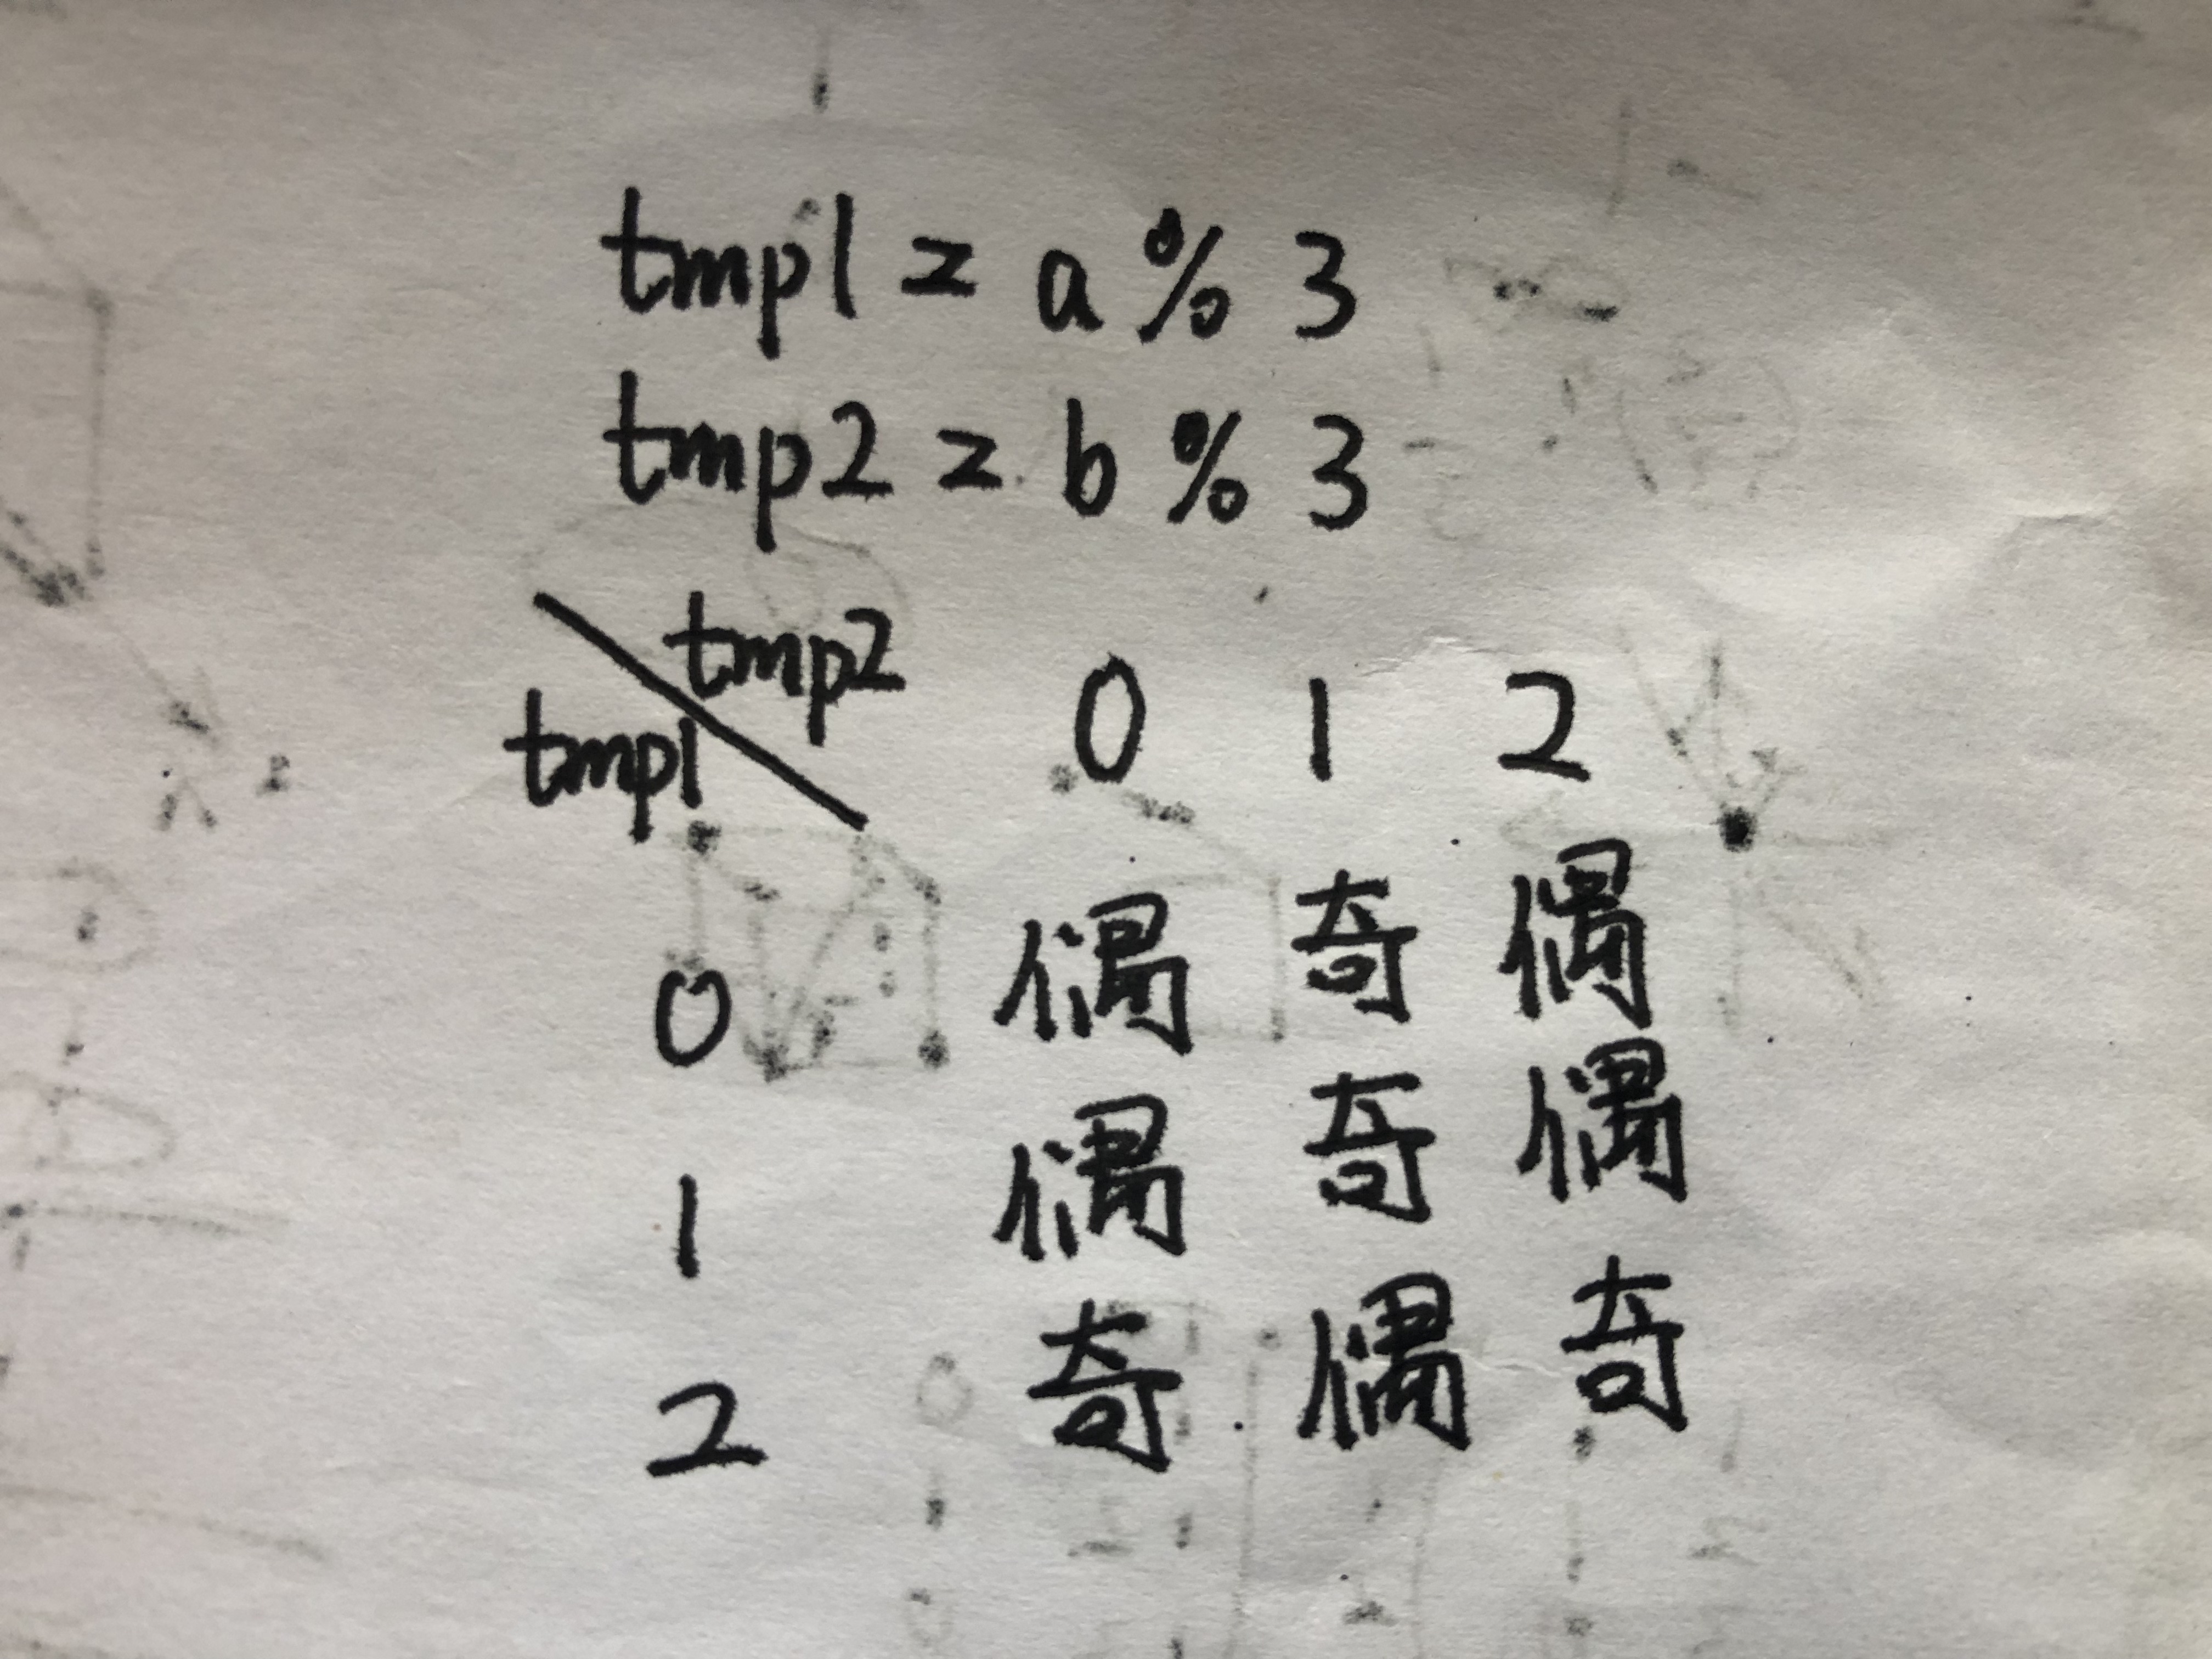 tmp1 = a % 3
tmp2 = b % 3
tmp2 0 1 2
tmp1
0 偶 奇 偶
1 偶 奇 偶
2 奇 偶 奇